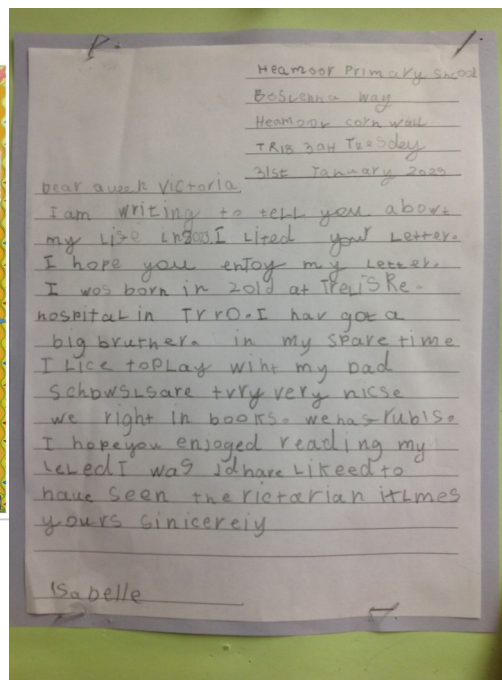 Heamoor Primary Shool
Boslenna way
Heamoor corn wall
TR18 3AH Tuesday
31st January 2023
Dear queek Victoria
I am writing to tell you about
my Life I Lited your Letter.
I hope you enjoy my Letter.
I was born in 2016 at TReLiSRe
hospital in TrrO. I hav got a
big bruther. in my spare time
I Lice toPLay wiht my Dad
very very nicse
we right in books. we has rubis.
I hopeyou enjoged reading my
I was Likeed to
have seen the victarian itLmes
yours sinicereiy
Isabelle